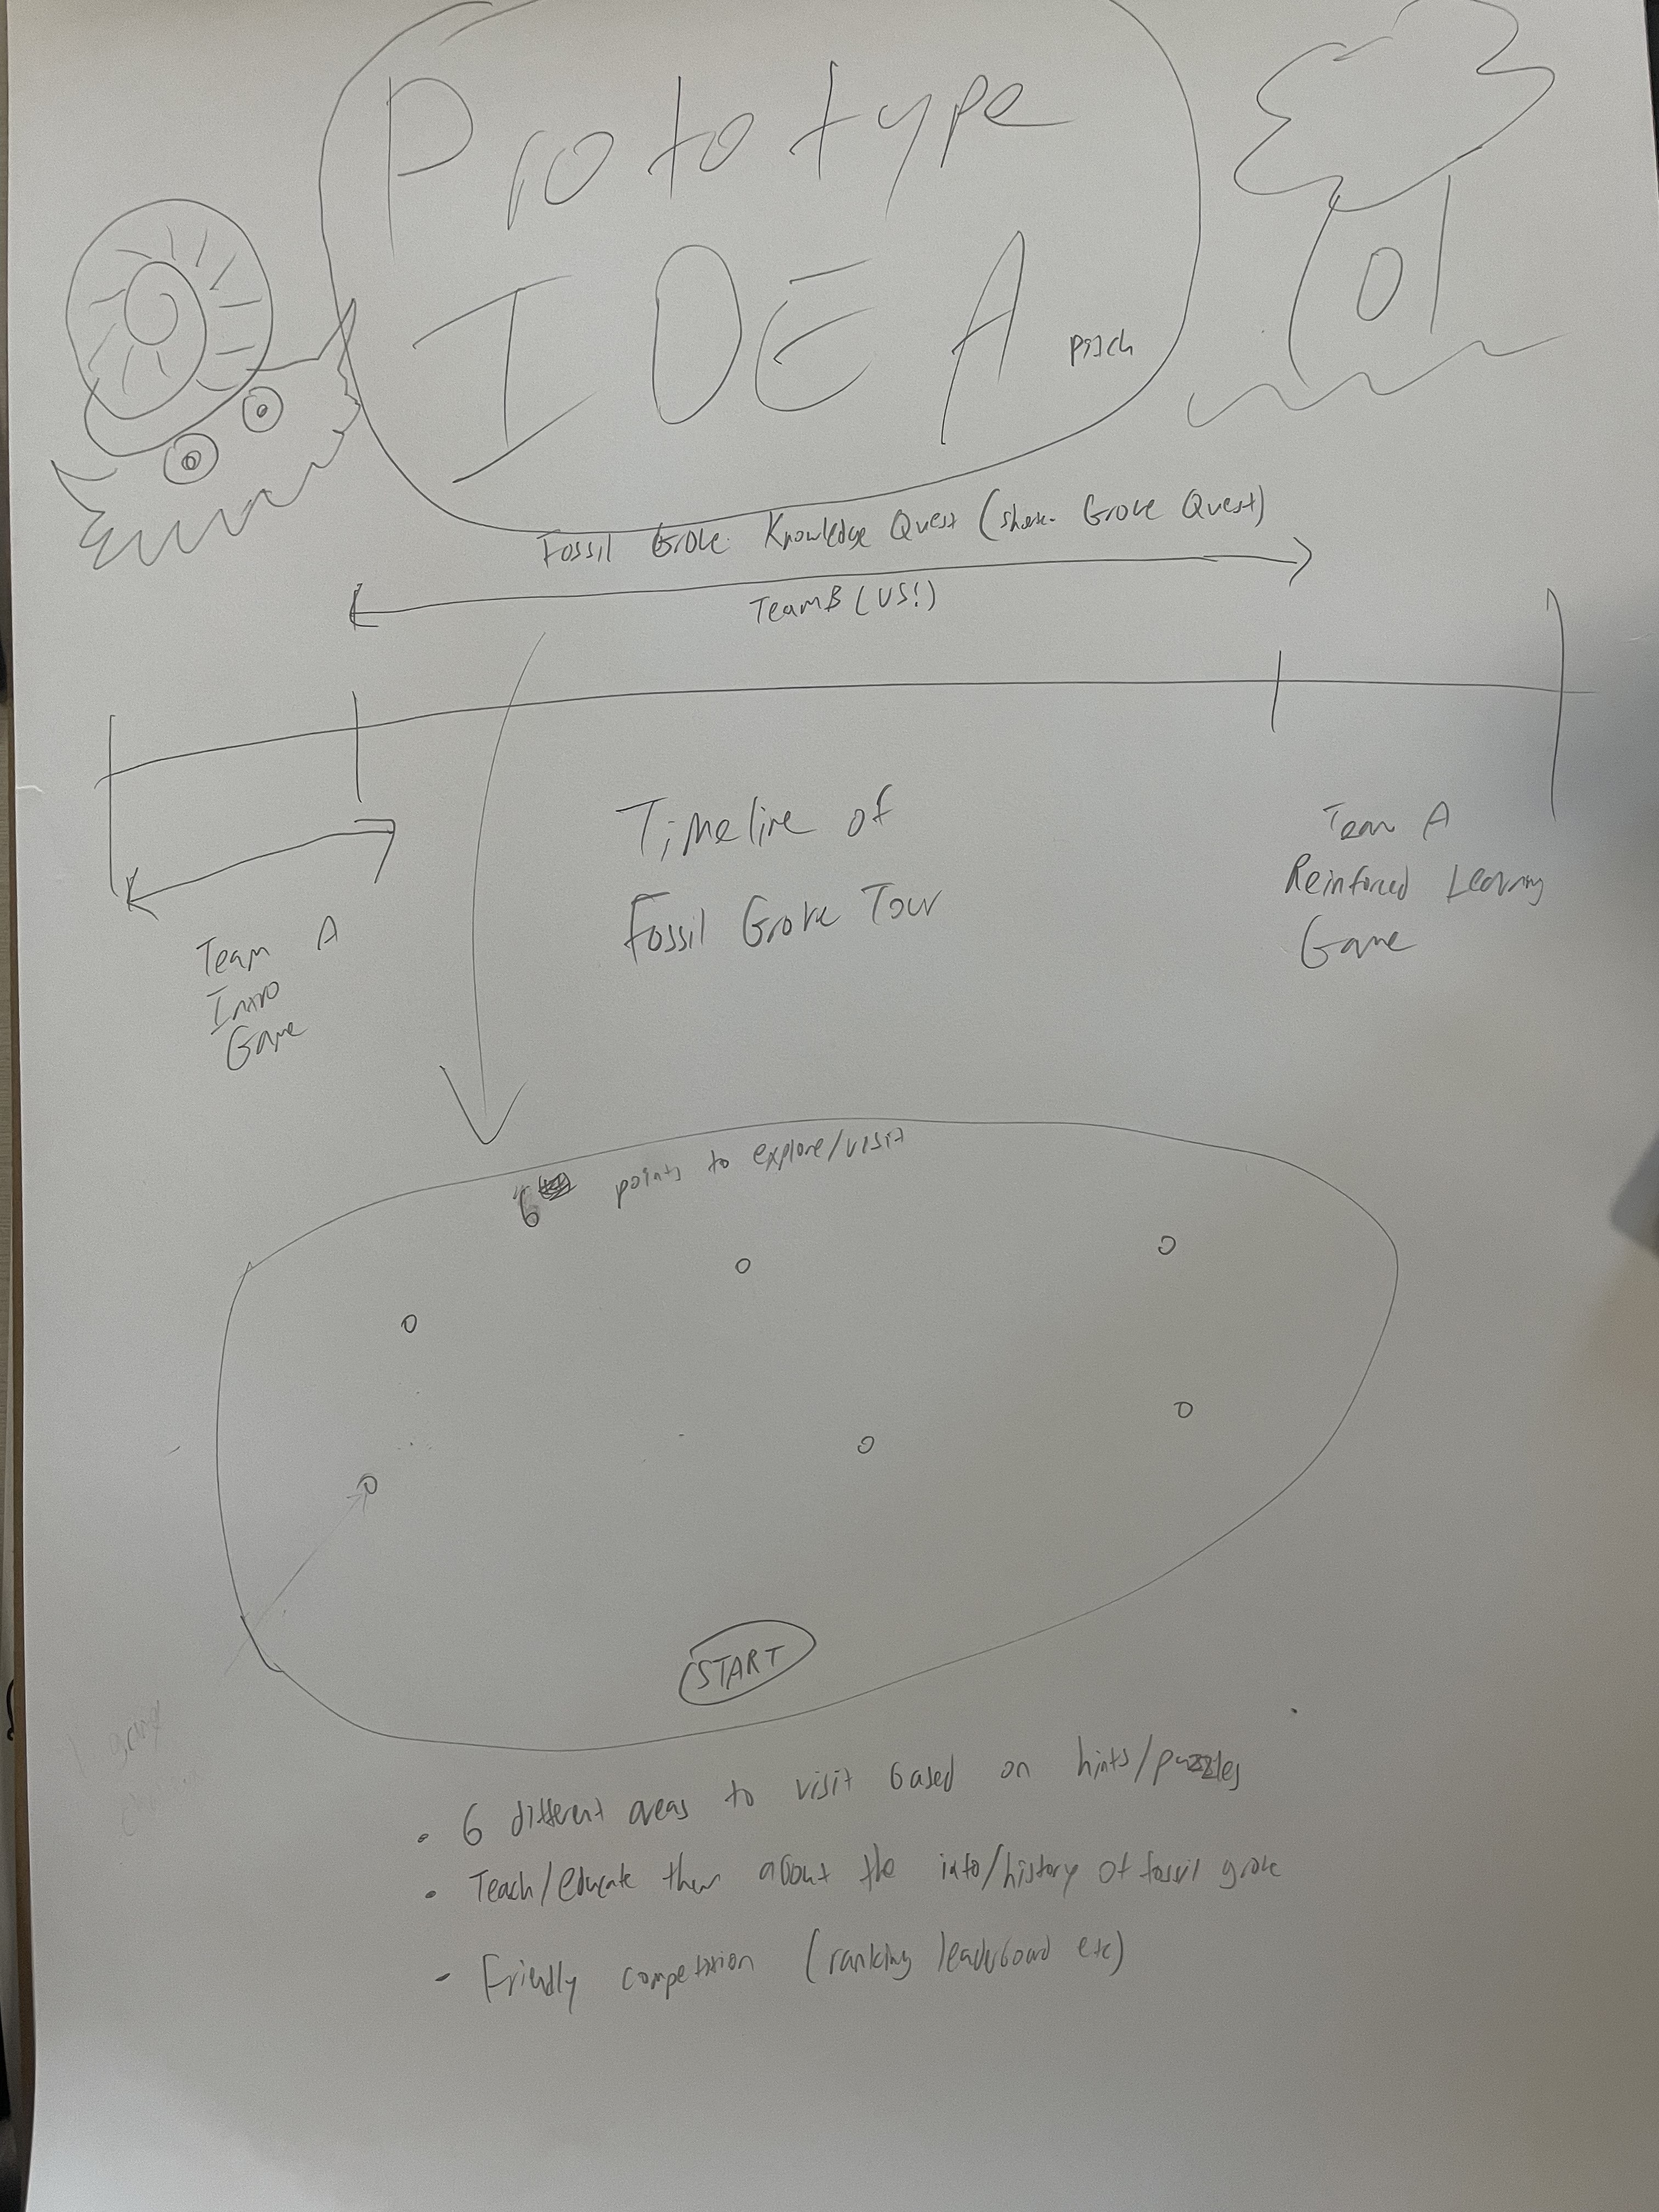 Prototype
IDEA pitch
Fossil Grove Knowledge Quest (short. Grove Quest)
Team B (US!)
Timeline of
Fossil Grove Tour
Team A
Intro
Game
Team A
Reinforced Learning
Game
6 points to explore/visit
START
• 6 different areas to visit based on hints/puzzles
• Teach/educate them about the info/history of fossil grove
- Friendly competition (ranking leaderboard etc)